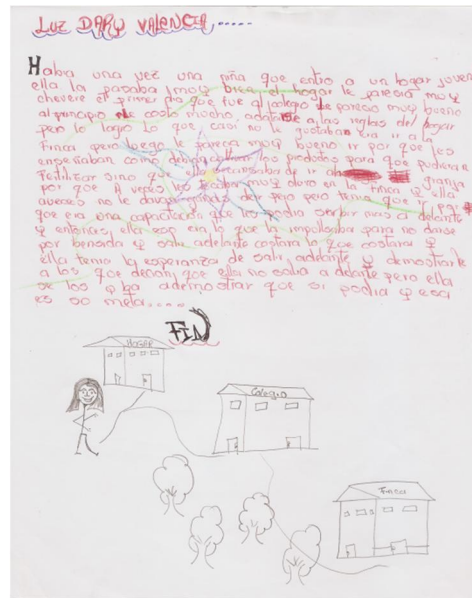 LUZ DARY VALENCIA.....
Habia una vez una niña que entro a un hogar joven
ella la pasaba muy bien el hogar le parecia muy
chevere el primer dia que fue al colegio le parecio muy bueno
al principio le costo mucho, adatarse a las reglas del hogar
pero lo logro lo que casi no le gustaba era ir a la
Finca pero luego le parecia muy bueno ir por que les
enseñaban como los para que pudieran
Fertilizar sino que ella se cansaba de ir a la granja
por que A veces les tocaba muy duro en la finca y ella
aveces no le daba pero tenia que ir por
que era una capacitacion que les podia servir mas adelante
y entonces, ella eso era lo que la impulsaba para no darse
por bensida y salir adelante costara lo que costara y
ella tenia la esperanza de salir adelante y demostrarle
a los que decian que ella no salia adelante pero ella
se los iba ademostrar que si podia y esa
es so meta....
FIN
HOGAR
Colegio
Finca